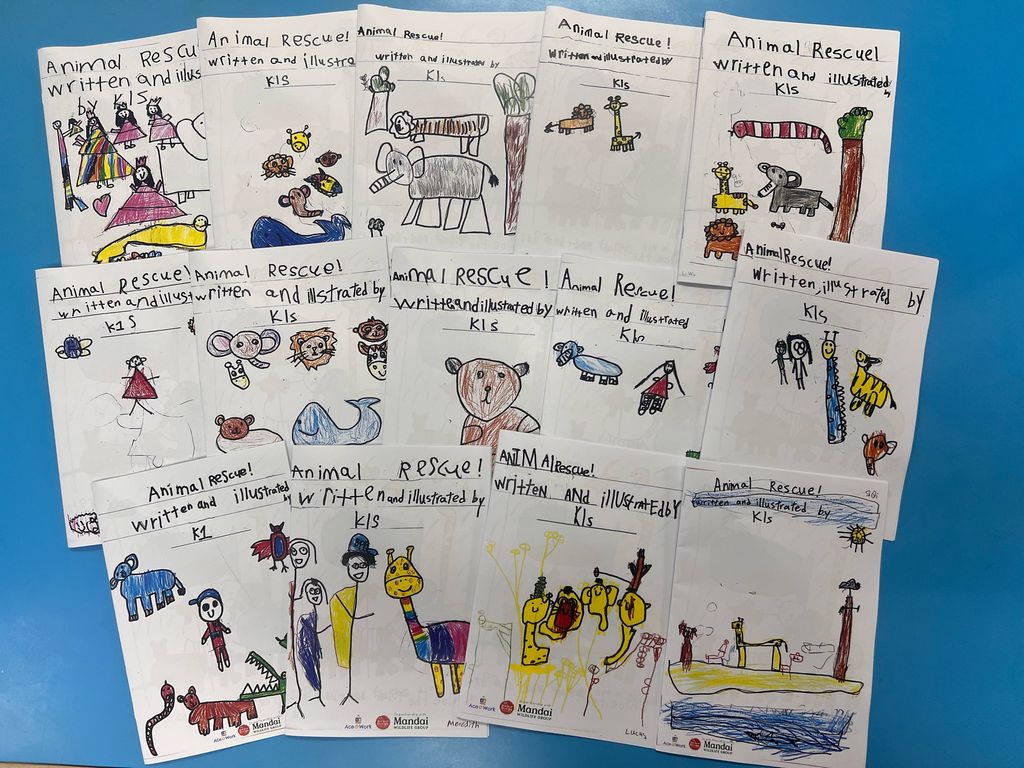 Animal Rescu
written and illus
by KIS
Animal Rescue!
written and illustra
KIS
Animal Rescue!
written and illustrated by
KIs
Animal Rescue!
written and illustrated by
KIs
Animal Rescue!
written and illustrated by
KIs
Animal Rescue!
written and illust
K1S
Animal Rescue!
written and illstrated by
KIs
Animal Rescue!
written and illustrated by
KIs
Animal Rescue!
written and illustrated
KIs
Animal Rescue!
written, illustrated by
KIs
Animal Rescue!
written and illustrated
K1
Ace@Work
Mandai
WILDLIFE GROUP
Animal Rescue!
written and illustrated by
KIs
Ace@Work
Mandai
WILDLIFE GROUP
Meredith
ANIMAl Rescue!
written AND illUStRAtED bY
KIs
Ace@Work
Mandai
WILDLIFE GROUP
LUCAS
Animal Rescue!
written and illustrated by
KIs
Ace@Work
Mandai
WILDLIFE GROUP